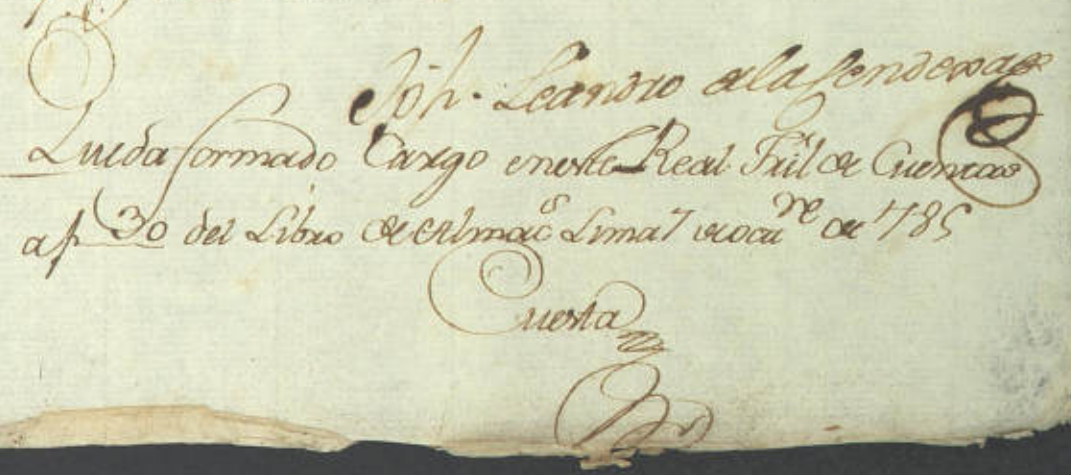 Jph. Leandro de la Senderos
Queda formado Cargo en este Real Trĩl de Cuentas
a f 30 del Libro de Almacs Lima 7 de de 785
Cuesta